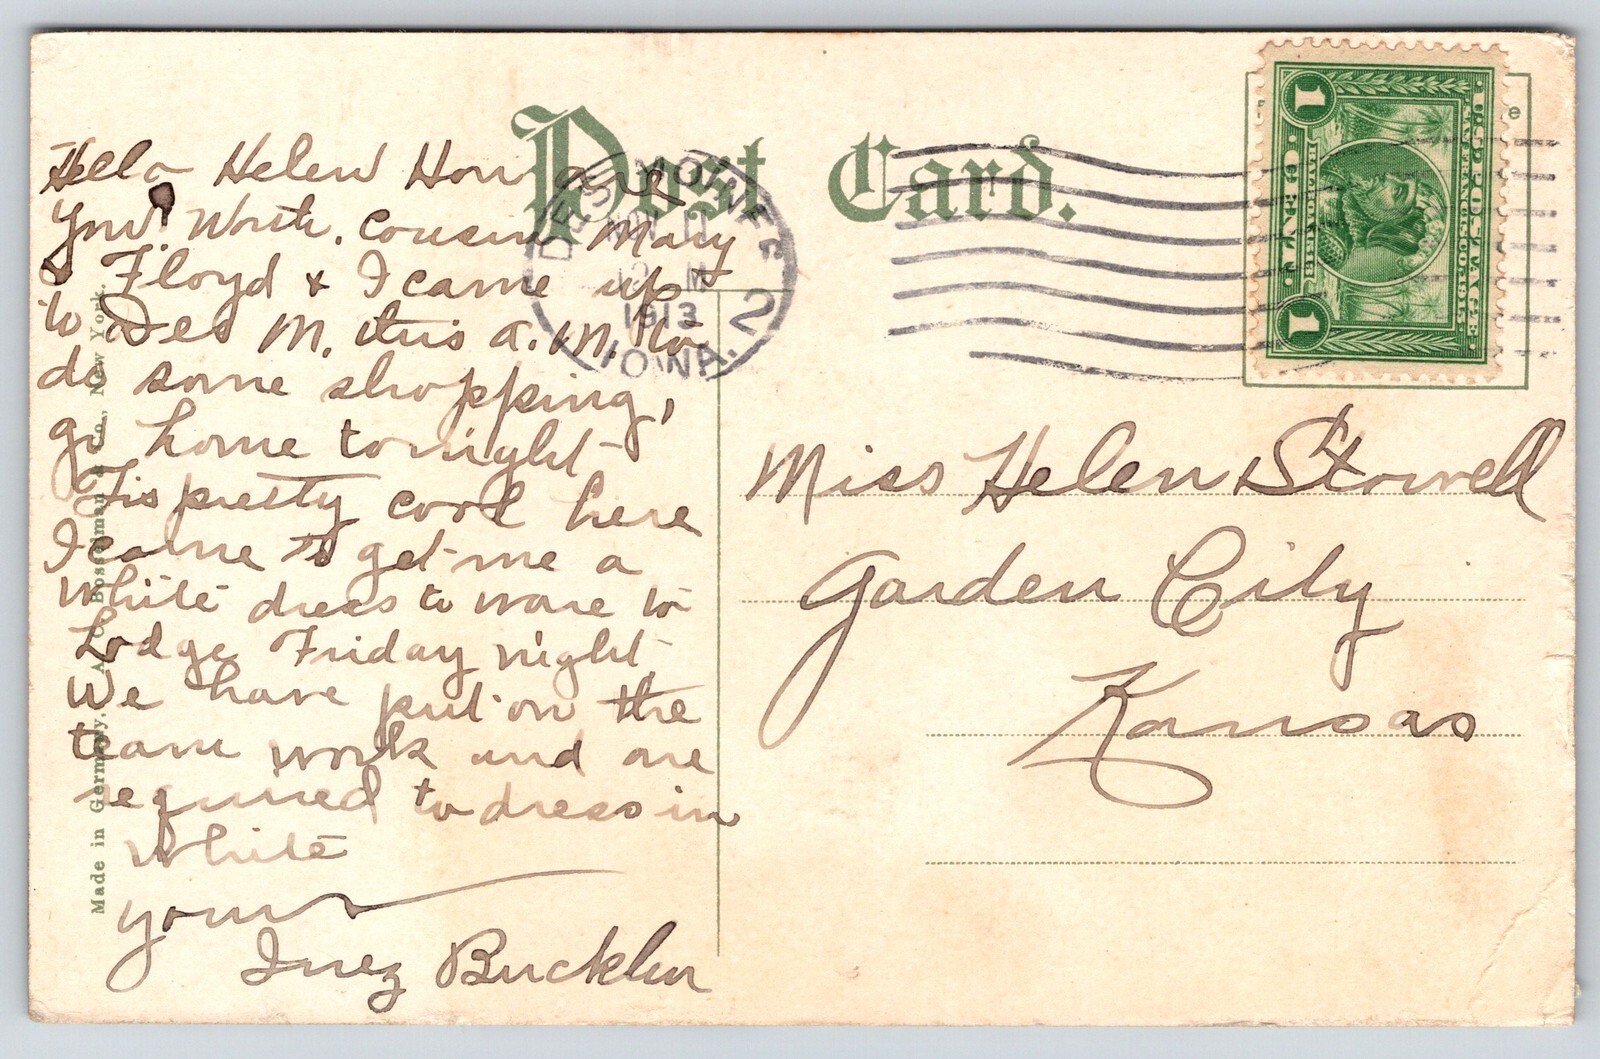 Post Card.
DES MOINES
NOV 11
12 M
1913
IOWA. 2
U.S. POSTAGE
SAN FRANCISCO 1915
BALBOA 1513
1 CENT 1
Hello Helen How are
you? Write. Cousin Mary
& Floyd & I came up
to Des M. this a.m. to
do some shopping,
go home tonight
Tis pretty cool here
I came to get me a
White dress to ware to
Lodge Friday night
We have put on the
team work and are
required to dress in
White
yours
Inez Bucklew
Miss Helen Stowell
Garden City
Kansas
Made in Germany. A. C. Bosselman & Co., New York.